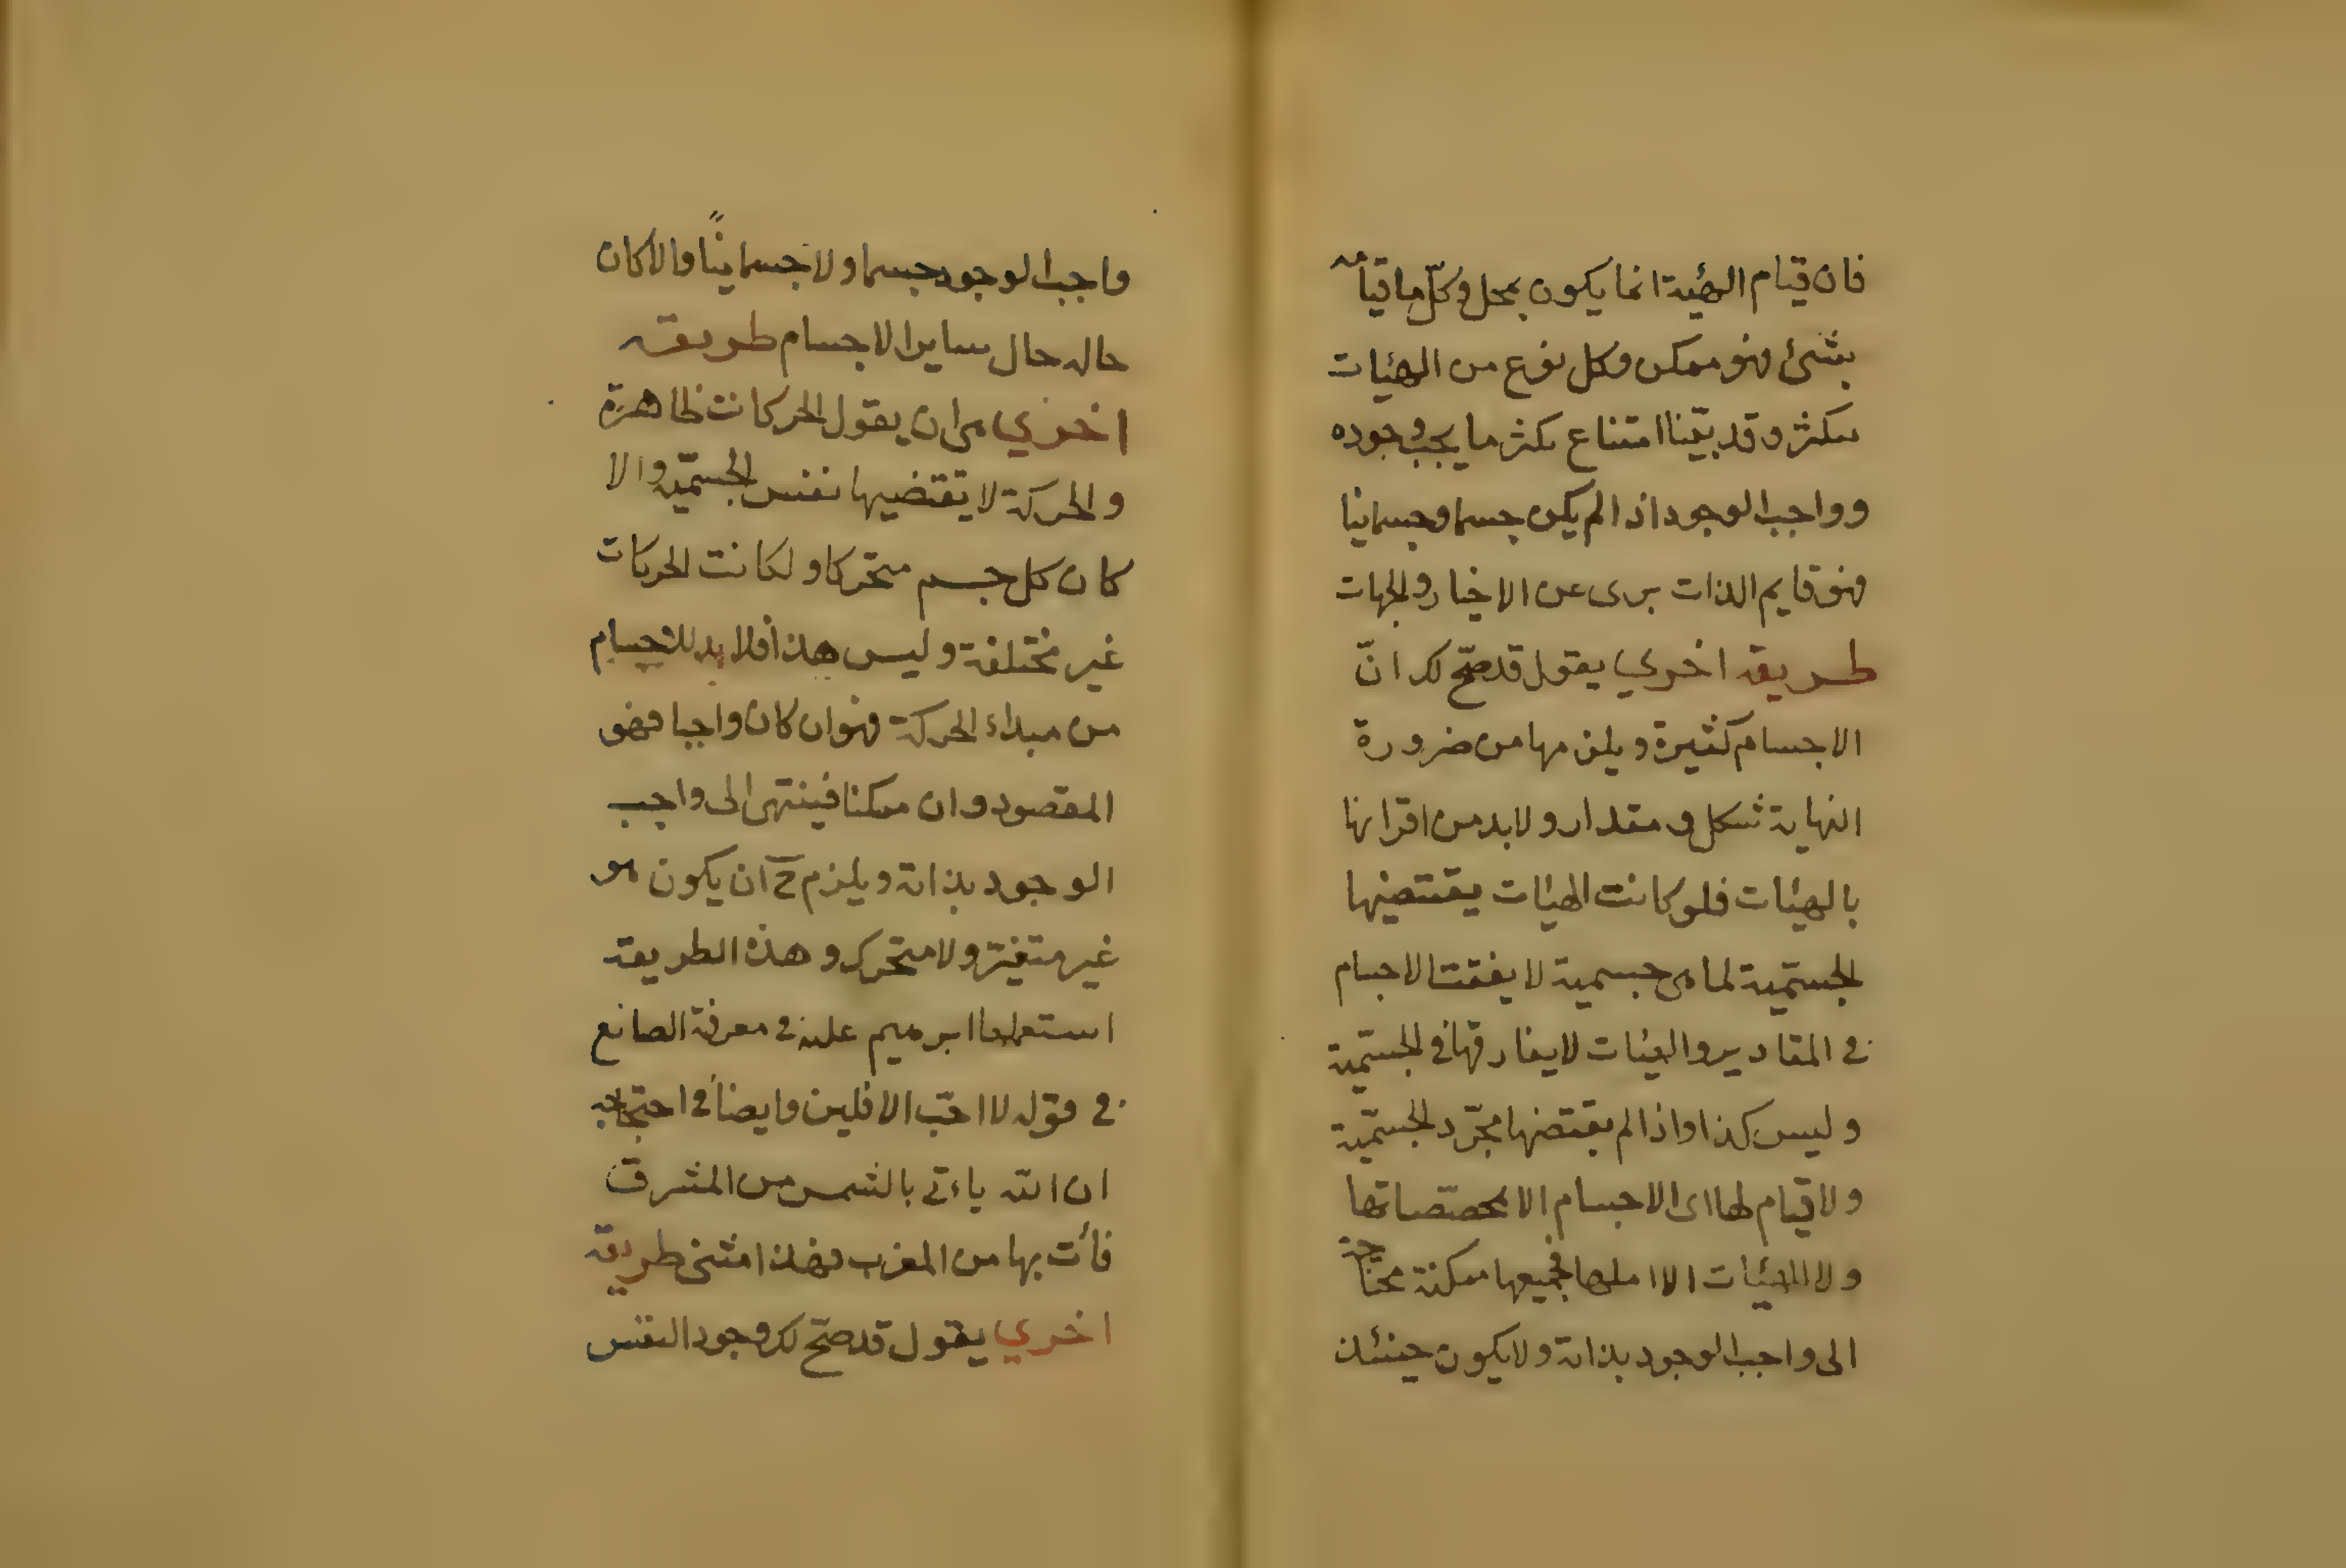 فان قيام الهيئة انما يكون بمحل وكلّ ما قيامه
بشئ فهو ممكن وكل نوع من الهيئات
يتكثر وقد بيّنا امتناع تكثر ما يجب وجوده
وواجب الوجود اذا لم يكن جسما وجسمانيا
فهو قايم الذات برى عن الاخيار والجهات
طريقه اخري يقول قد صحّ لك انّ
الاجسام كثيرة ويلزمها من ضرورة
النهاية شكل ومقدار ولابد من اقترانها
بالهيئات فلو كانت الهيئات يقتضيها
الجسميّة لما هى جسمية لا يفقت الاجسام
فى المقادير والهيئات لا يفارقها فى الجسميّة
وليس كذا واذا لم يقتضها مجرّد الجسميّة
ولا قيام لها اى الاجسام الا بمخصّصاتها
ولا للهيئات الا فجميعها ممكنة محتاجة
الى واجب الوجود بذاته ولا يكون حينئذ
واجب الوجود جسما ولا جسمانيًا والا كان
حاله حال ساير الاجسام طريقه
اخري هى ان يقول الحركات ظاهرة
والحركة لا يقتضيها نفس الجسميّة والا
كان كل جسم متحركا ولكانت الحركات
غير مختلفة وليس هذا فلا بد للاجسام
من مبداء الحركة فهو ان كان واجبا فهو
المقصود وان ممكنا فينتهى الى واجب
الوجود بذاته ويلزم ح ان يكون هو
غير متغيّر ولا متحرك وهذه الطريقة
استعملها ابرهيم عليه فى معرفة الصانع
فى قوله لا احبّ الافلين وايضاً فى احتجاجه
ان الله ياءتى بالشمس من المشرق
فأت بها من المغرب فهذا امتنى طريقه
اخري يقول قد صحّ لك وجود النفس